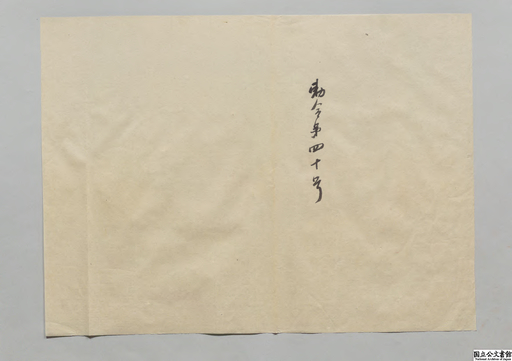 勅令第四十号
国立公文書館
National Archives of Japan